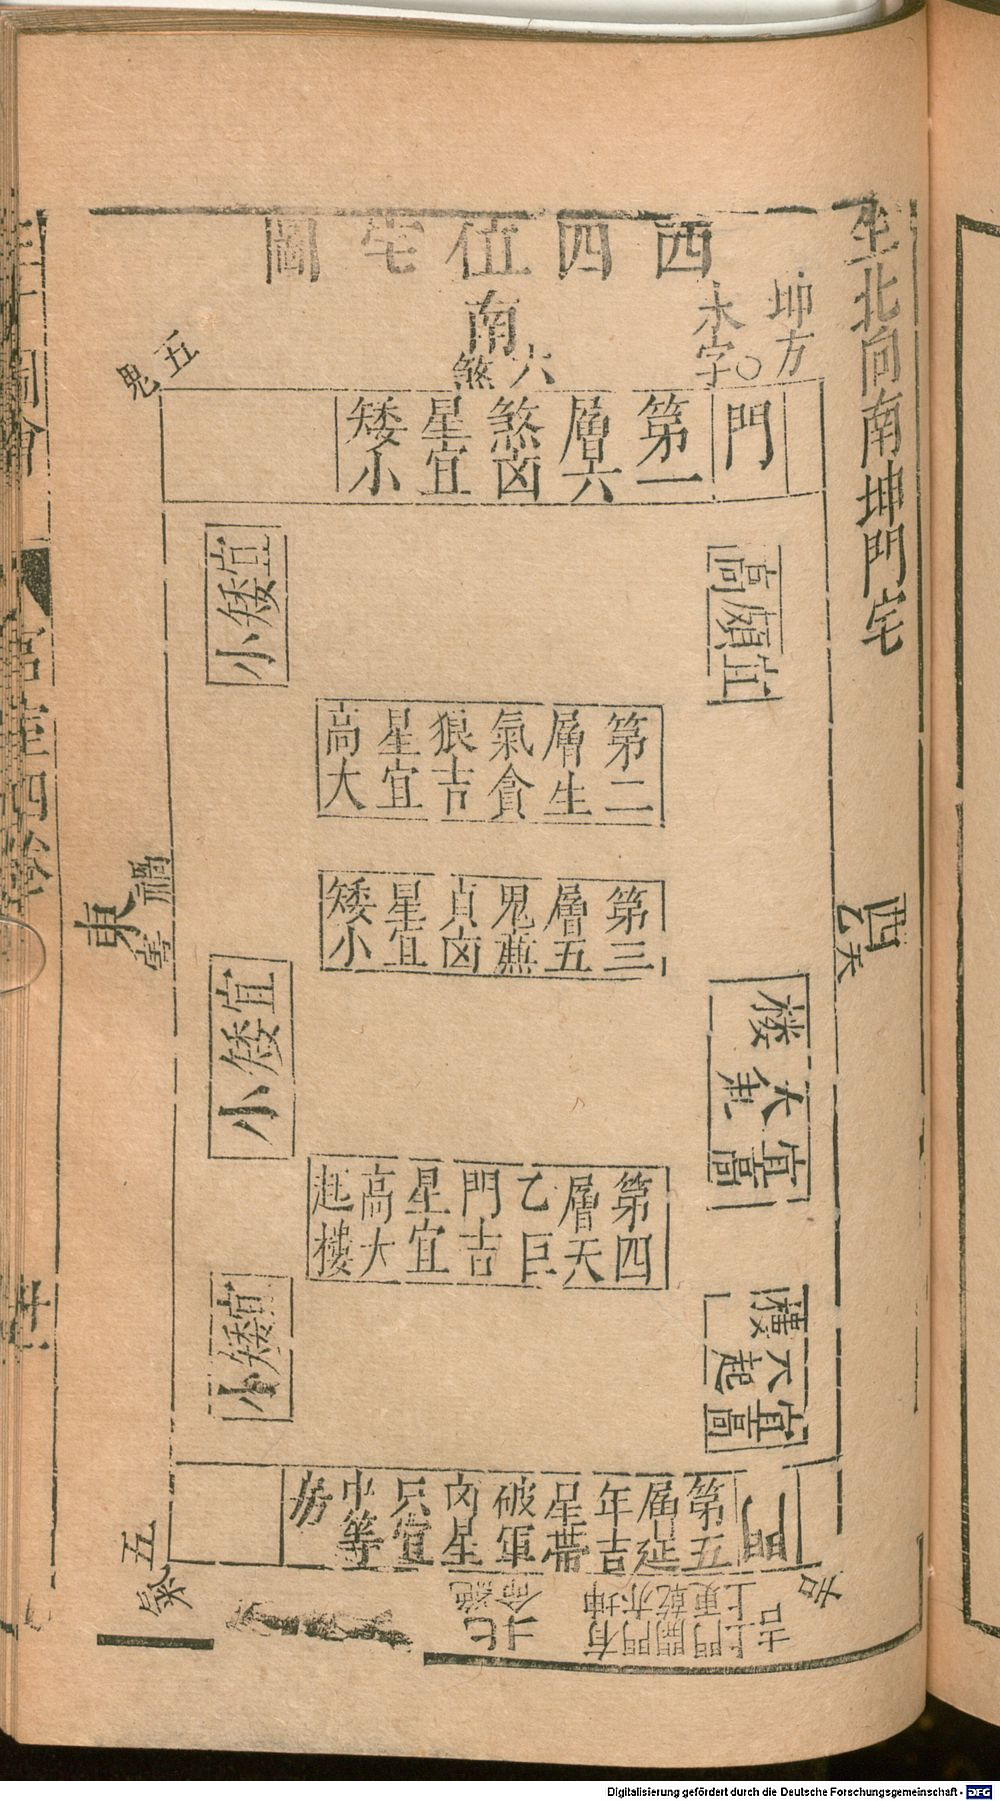 坐北向南坤門宅
西四位宅圖
坤方
永字
南
六煞
五鬼
門
第一層六煞凶星宜矮小
高頗宜
宜矮小
第二層生氣貪狼吉星宜高大
第三層五鬼廉貞凶星宜矮小
西
天乙
東
禍害
宜高大起楼
宜矮小
第四層天乙巨門吉星宜高大起樓
宜高大起樓
宜矮小
第五層延年吉星帶破軍凶星只宜中等房
五
氣
北
絕命
吉
坤門有
乾門開
更上
吉上
三才圖會
宮室四卷
Digitalisierung gefördert durch die Deutsche Forschungsgemeinschaft - DFG